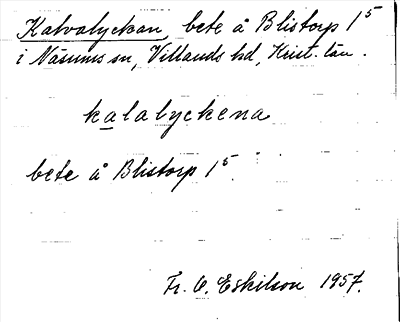 Kalvalyckan, bete å Blistorp 1⁵
i Näsums sn, Villands hd, Krist. län.
kalalyckena
bete å Blistorp 1⁵.
Fr. O. Eskilson 1957.